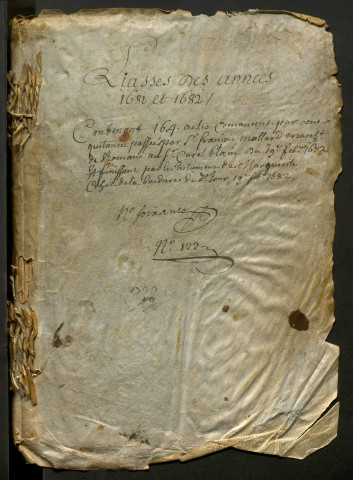 Liasses Des années
1681 et 1682 /
Contenant 164 actes Comancant par une
quitance passée par Sr francois Mollard
de St romans au Sr Curé blain du 19e feb 1682
et finissant par le testament de Marguerite
de la du dt jour 19e feb 1682
No soixante
No 122